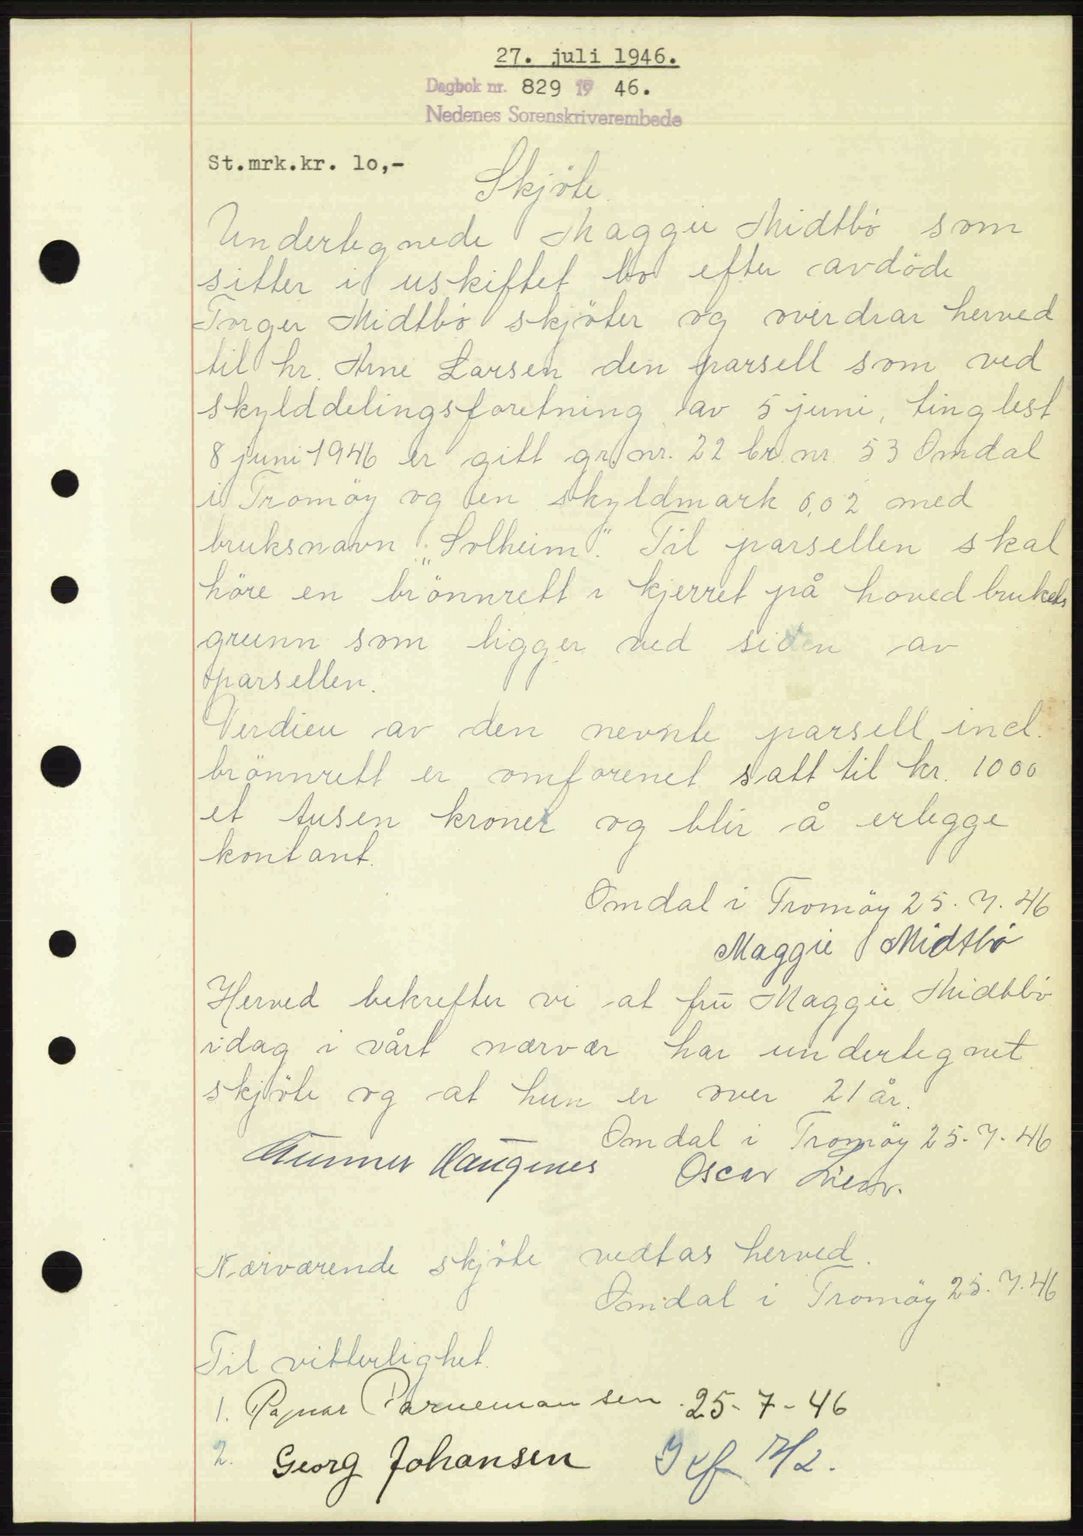 27. juli 1946.
Dagbok nr. 829 19 46.
Nedenes Sorenskriverembede
St.mrk.kr. 1o,-
Skjöte.
Undertegnede Maggie Midtbö som
sitter i uskiftet bo efter avdöde
Torger Midtbö skjöter og overdrar herved
til hr. Arne Larsen den parsell som ved
skylddelingsforetning av 5 juni, tinglest
8 juni 1946 er gitt gr. nr. 22 br. nr. 53 Omdal
i Tromöy og en skyldmark 0,02 med
bruksnavn „Solheim". Til parsellen skal
höre en brönnrett i kjerret på hovedbrukets
grunn som ligger ved siden av
parsellen.
Verdien av den nevnte parsell incl.
brönnrett er omforenet satt til kr. 1000
et tusen kroner og blir å erlegge
kontant.
Omdal i Tromöy 25.7.46
Maggie Midtbö
Herved bekrefter vi at fru Maggie Midtbö
idag i vårt nærvær har undertegnet
skjöte og at hun er over 21 år.
Omdal i Tromöy 25.7.46
Gunner Haugenes Oscar
Nærværende skjöte vedtas herved.
Omdal i Tromöy 25.7.46
Til vitterlighet
1. Ragnar 25-7-46
2. Georg Johansen